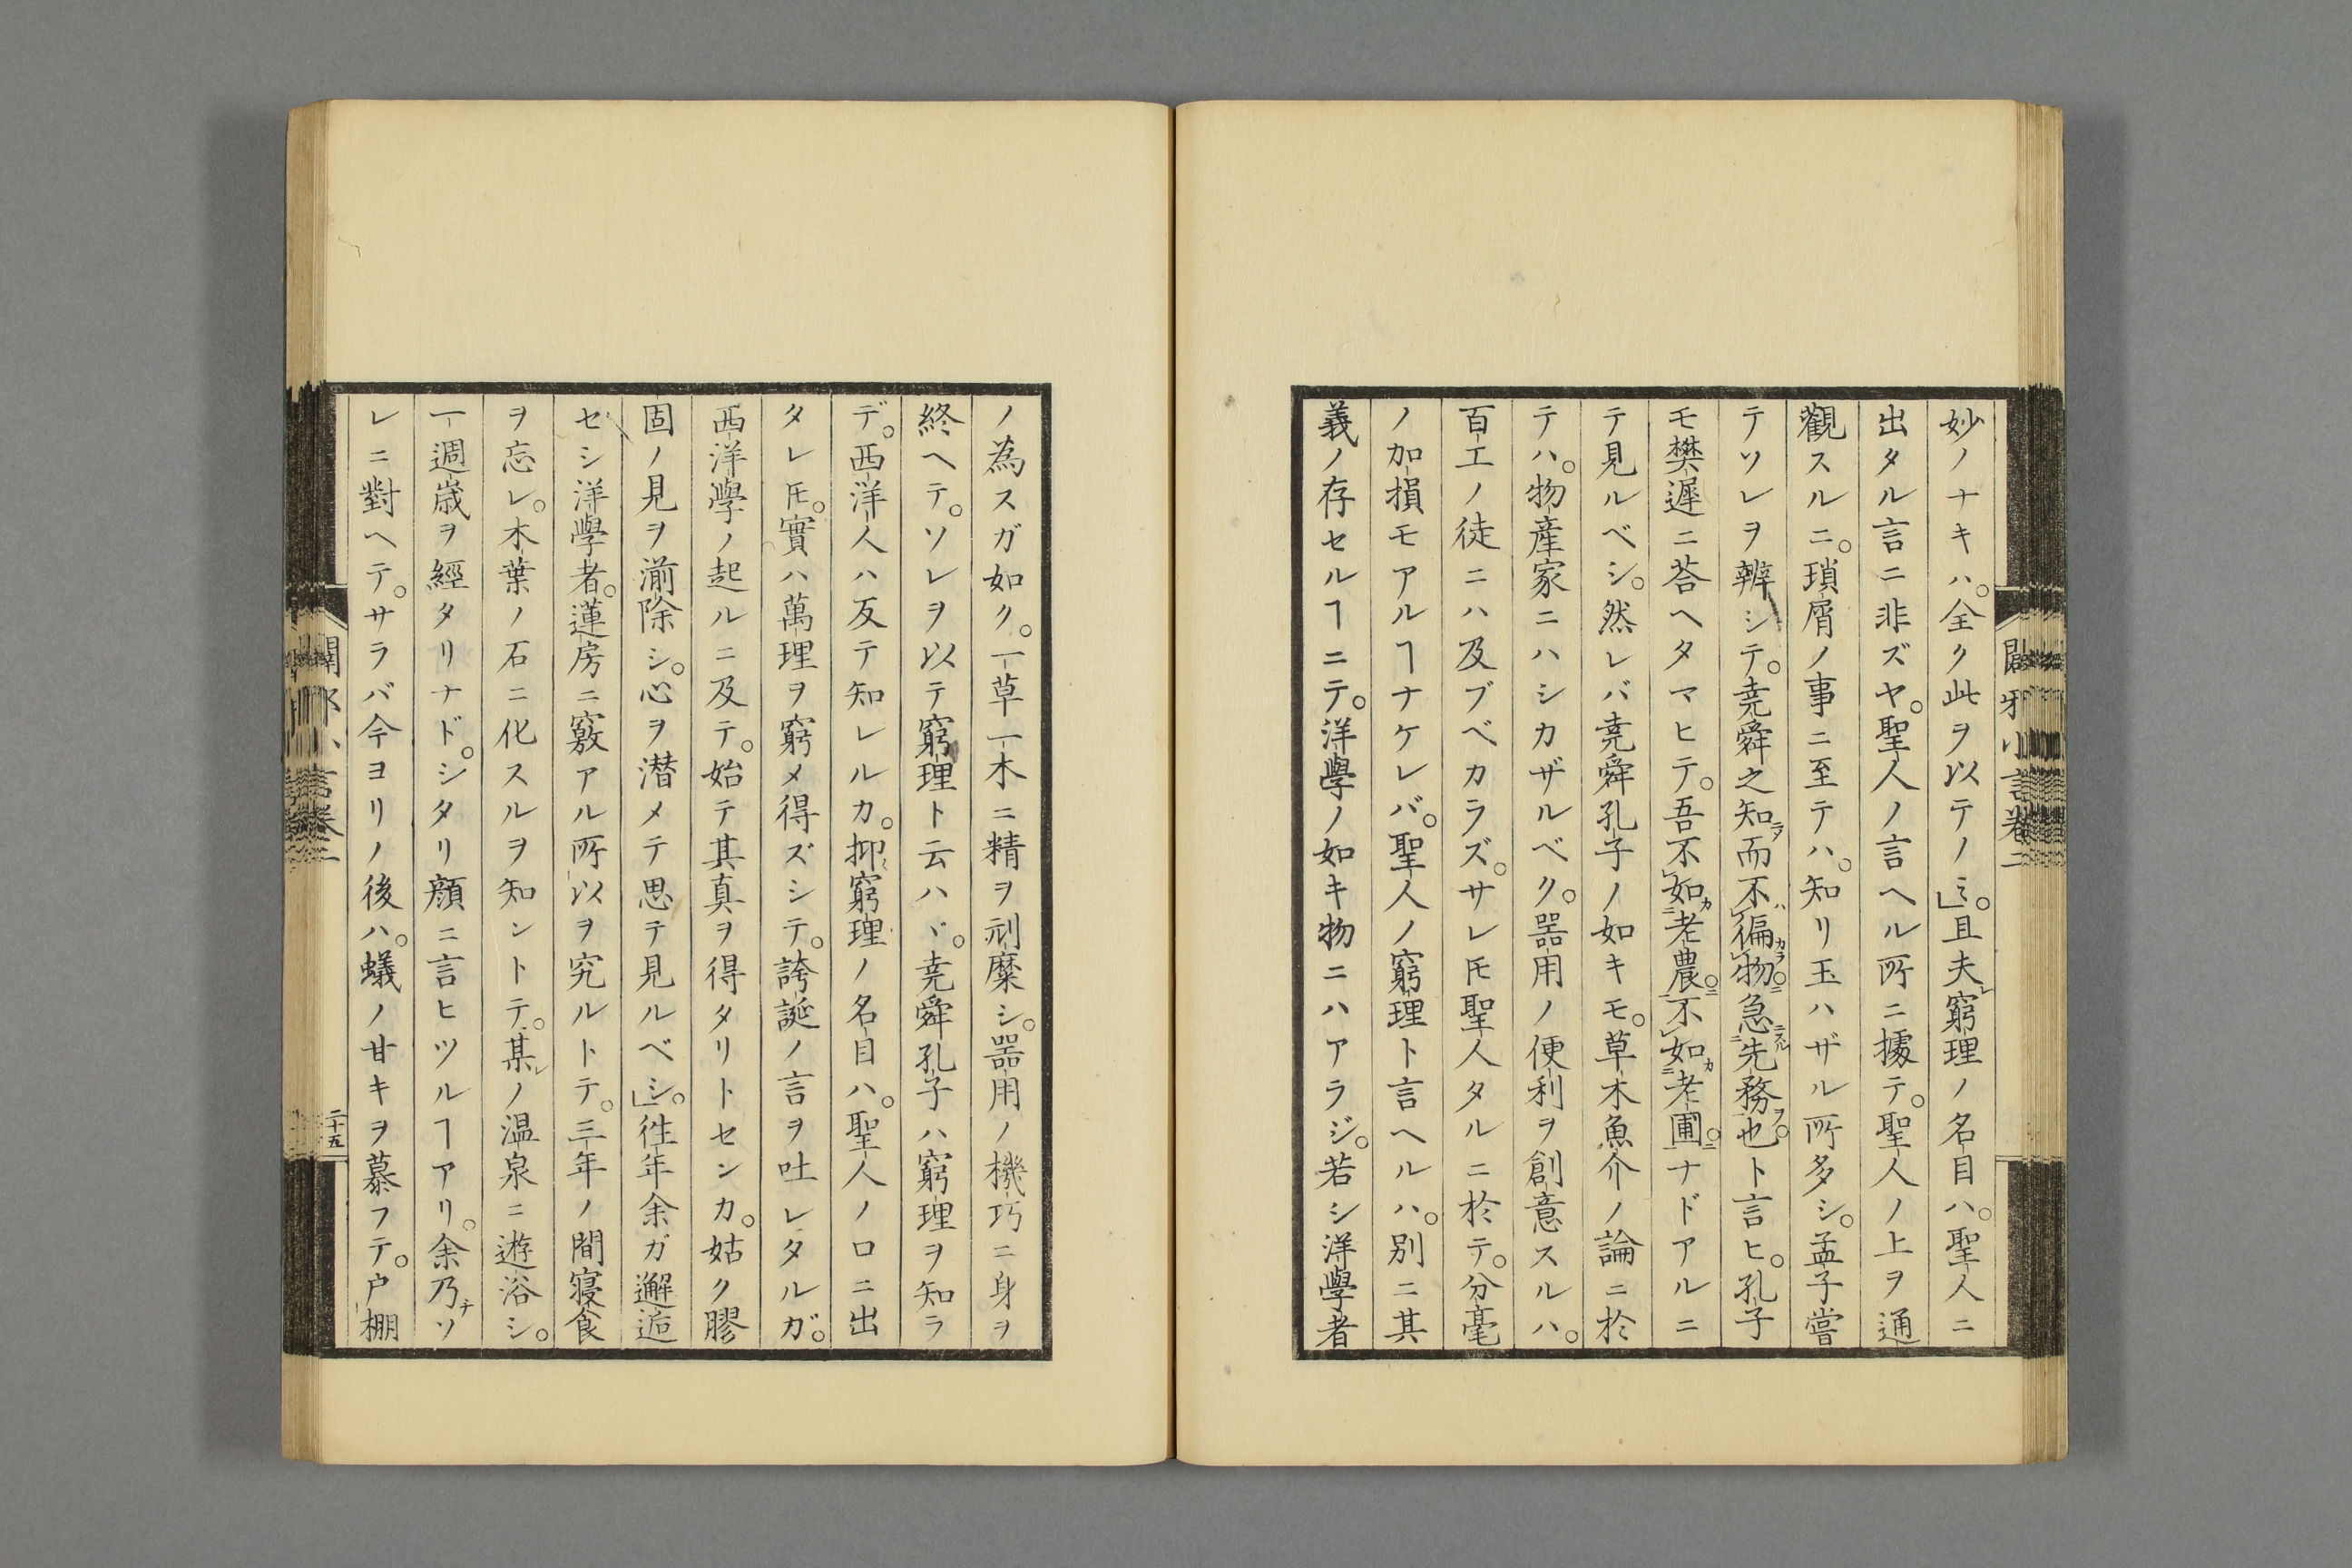 妙ノナキハ。全ク此ヲ以テノミ。」且夫レ窮理ノ名目ハ。聖人ニ
出タル言ニ非ズヤ。聖人ノ言ヘル所ニ據テ。聖人ノ上ヲ通
觀スルニ。瑣屑ノ事ニ至テハ。知リ玉ハザル所多シ。孟子嘗
テソレヲ辨シテ。堯舜之知ニヲ而不ハレ徧カラレ物。ニ急ニスルニ先務ヲ也。ト言ヒ。孔子
モ樊遲ニ荅ヘタマヒテ。吾不レ如カニ老農。ニ不レ如カニ老圃。ニナドアルニ
テ見ルベシ。然レバ堯舜孔子ノ如キモ。草木魚介ノ論ニ於
テハ。物産家ニハシカザルベク。器用ノ便利ヲ創意スルハ。
百工ノ徒ニハ及ブベカラズ。サレ𪜈聖人タルニ於テ。分毫
ノ加損モアルヿナケレバ。聖人ノ窮理ト言ヘルハ。別ニ其
義ノ存セルヿニテ。洋學ノ如キ物ニハアラジ。若シ洋學者
ノ為スガ如ク。一草一木ニ精ヲ刓糜シ。器用ノ機巧ニ身ヲ
終ヘテ。ソレヲ以テ窮理ト云ハヾ。堯舜孔子ハ窮理ヲ知ラ
デ。西洋人ハ反テ知レルカ。抑〻窮理ノ名目ハ。聖人ノ口ニ出
タレ𪜈。實ハ萬理ヲ窮メ得ズシテ。誇誕ノ言ヲ吐レタルガ。
西洋學ノ起ルニ及テ。始テ其真ヲ得タリトセンカ。姑ク膠
固ノ見ヲ湔除シ。心ヲ潜メテ思テ見ルベシ。」徃年余ガ邂逅
セシ洋學者。蓮房ニ竅アル所以ヲ究ルトテ。三年ノ間寢食
ヲ忘レ。木葉ノ石ニ化スルヲ知ントテ。某レノ温泉ニ遊浴シ。
一週歳ヲ經タリナド。シタリ顔ニ言ヒツルヿアリ。余乃チソ
レニ對ヘテ。サラバ今ヨリノ後ハ。蟻ノ甘キヲ慕フテ。戸棚
闢邪小言卷二
二十五